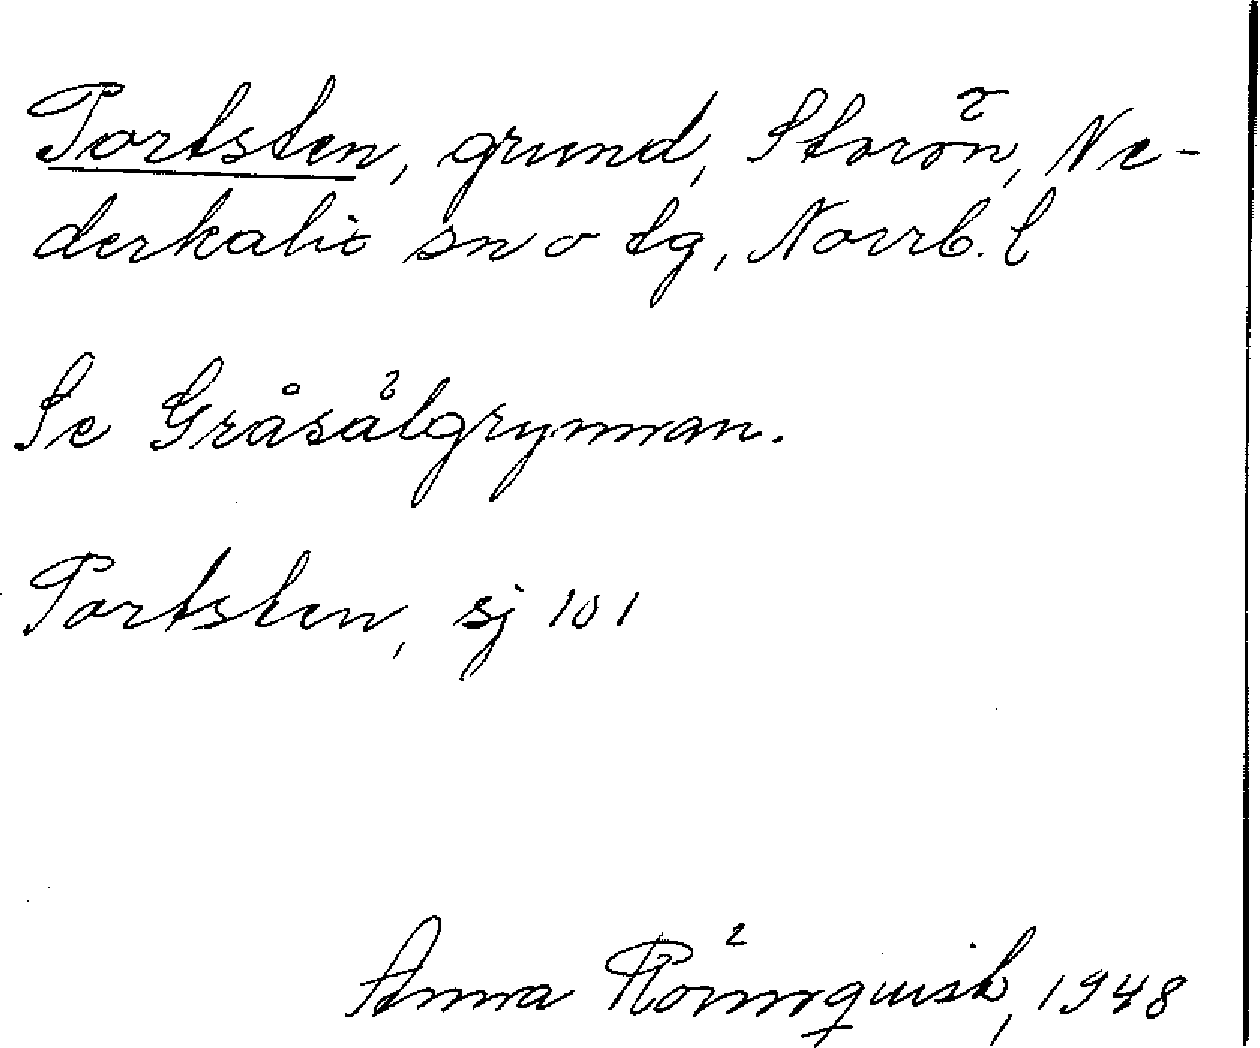 Tortsten, grund, Storön, Ne-
derkalix sn o tg, Norrb. l
Se Gråsälgrynnan.
Tortsten, sj 101
Anna 1948